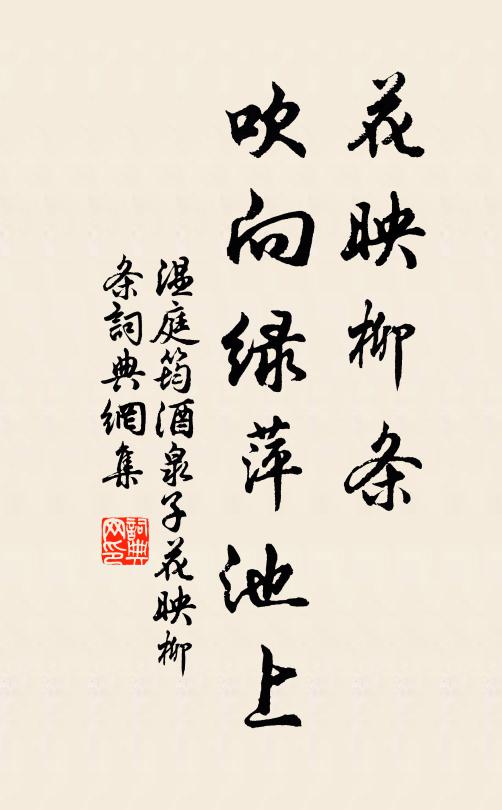 花映柳条
吹向绿萍池上
温庭筠酒泉子花映柳
条詞典網集
詞典网印